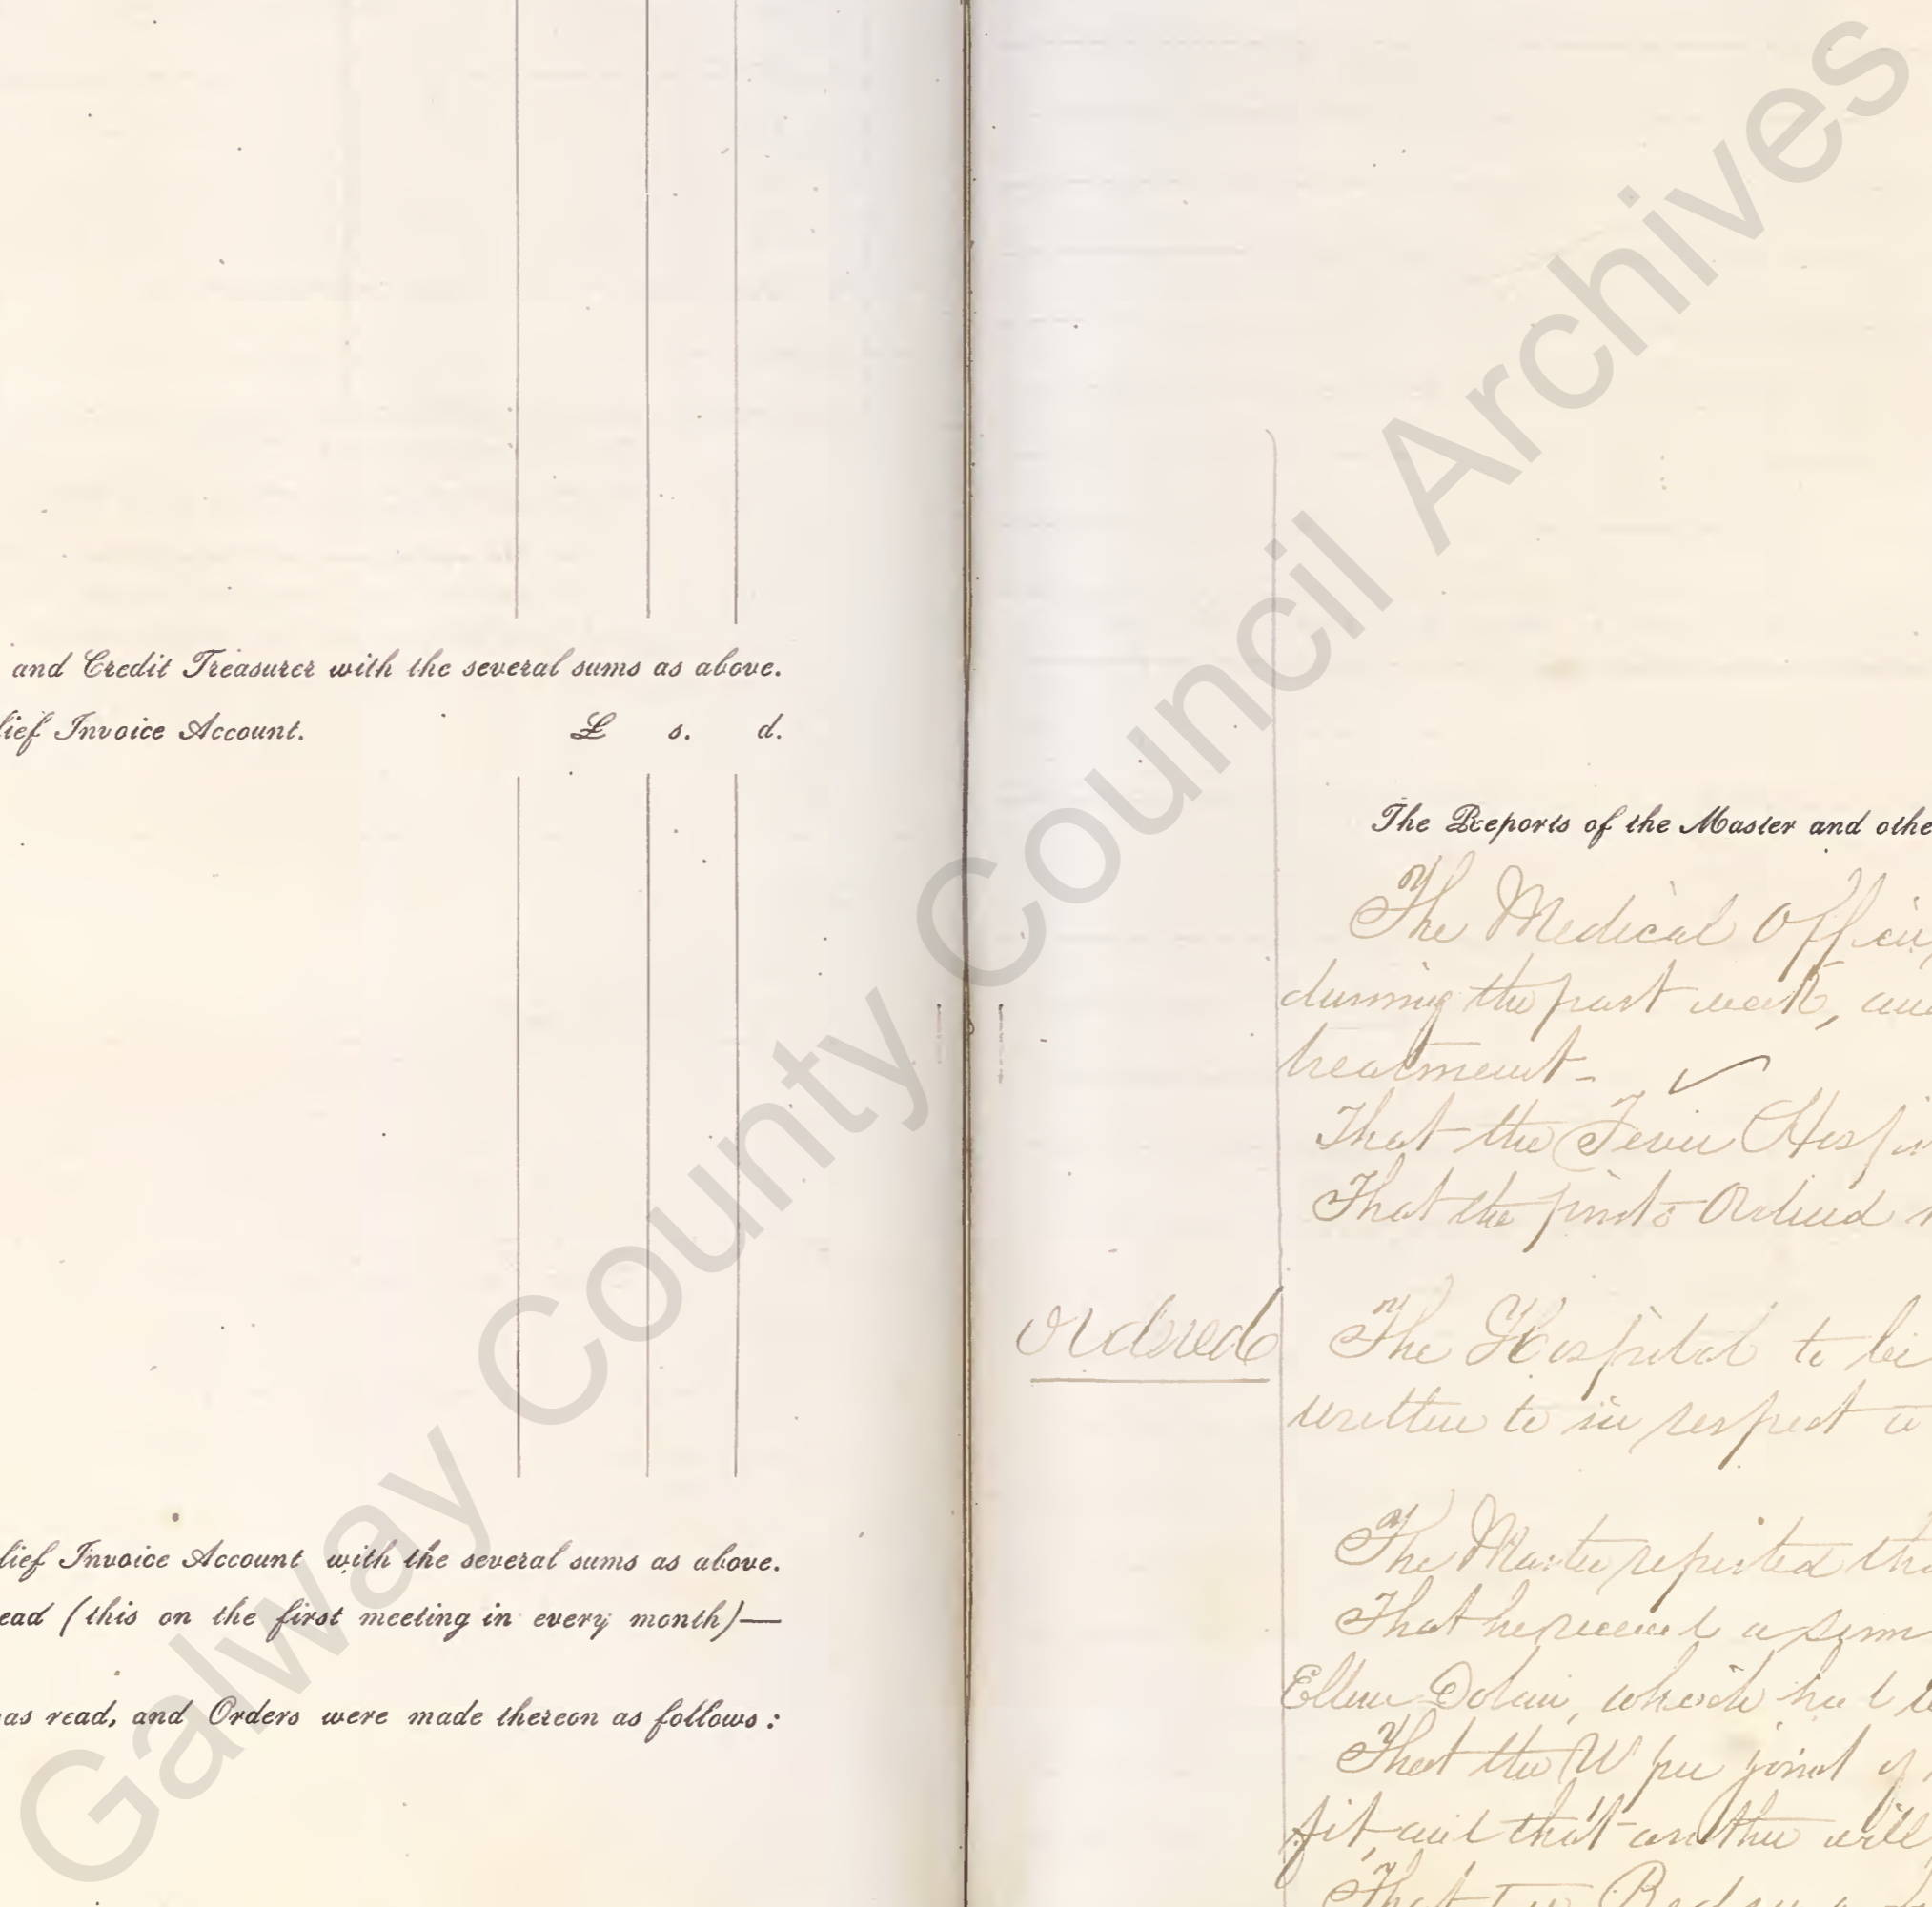 and Credit Treasurer with the several sums as above.
lief Invoice Account. £ s. d.
lief Invoice Account with the several sums as above.
ead (this on the first meeting in every month)—
as read, and Orders were made thereon as follows:
The Reports of the Master and othe
The Medical Officer
during the past week, and
treatment-
That the Fever Hospi
That the Ordered
Ordered
The Hospital to be
written to in respect
The Master reported tha
That he a
Ellen Dolan, which had
That the W
fit, and that another will
That
Galway County Council Archives